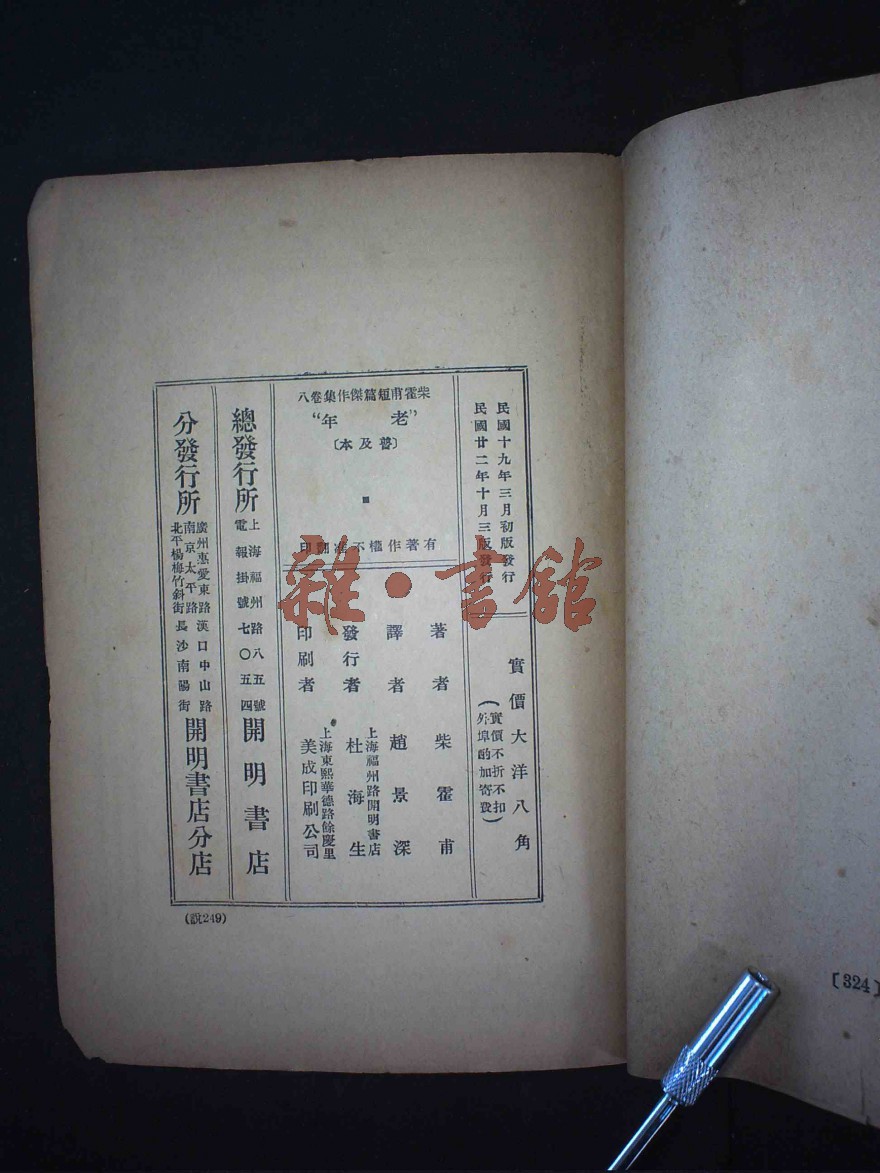 民國十九年三月初版發行
民國廿二年十月三版發行
實價大洋八角
(實價不折不扣
外埠酌加寄費)
柴霍甫短篇傑作集卷八
“老年”
〔普及本〕
有著作權不准翻印
著者 柴霍甫
譯者 趙景深
發行者 上海福州路開明書店
杜海生
印刷者 上海東熙華德路餘慶里
美成印刷公司
總發行所 上海福州路八五號
電報掛號七〇五四
開明書店
分發行所 廣州惠愛東路 漢口中山路
南京太平路
北平楊梅竹斜街 長沙南陽街
開明書店分店
(說249)
〔324〕
雜·書館